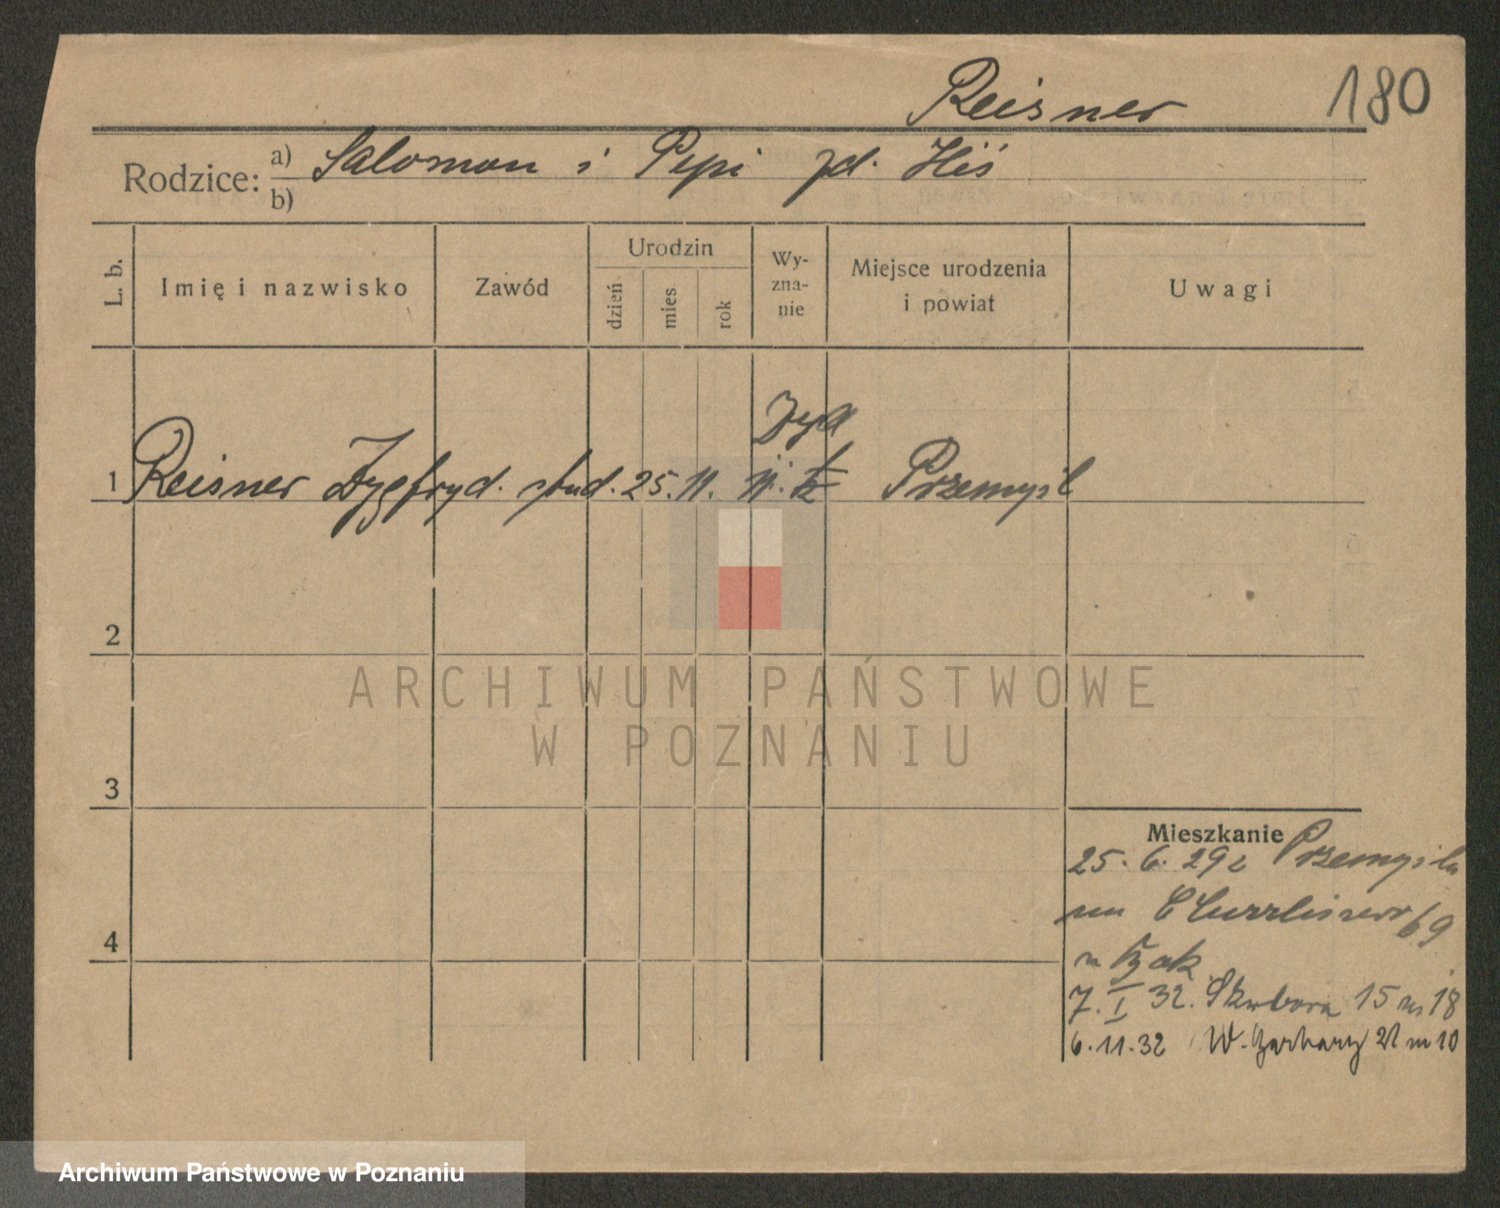 Reisner 180
Rodzice: a) Salomon i Pepi zd. Hiś
b)
L. b. Imię i nazwisko Zawód Urodzin dzień mies rok Wy-zna-nie Miejsce urodzenia i powiat Uwagi
1 Reisner Zygfryd. stud. 25. 11. 11. Przemyśl
2
ARCHIWUM PAŃSTWOWE
W POZNANIU
3
Mieszkanie
25. 6. 29 z Przemyśla
69
4
7. I 32. Skarbowa 15 m 18
6. 11. 32 W. Garbary 21 m 10
Archiwum Państwowe w Poznaniu